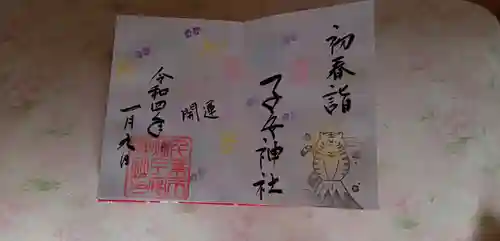 初春詣
子安神社
開運
令和四年
一月九日